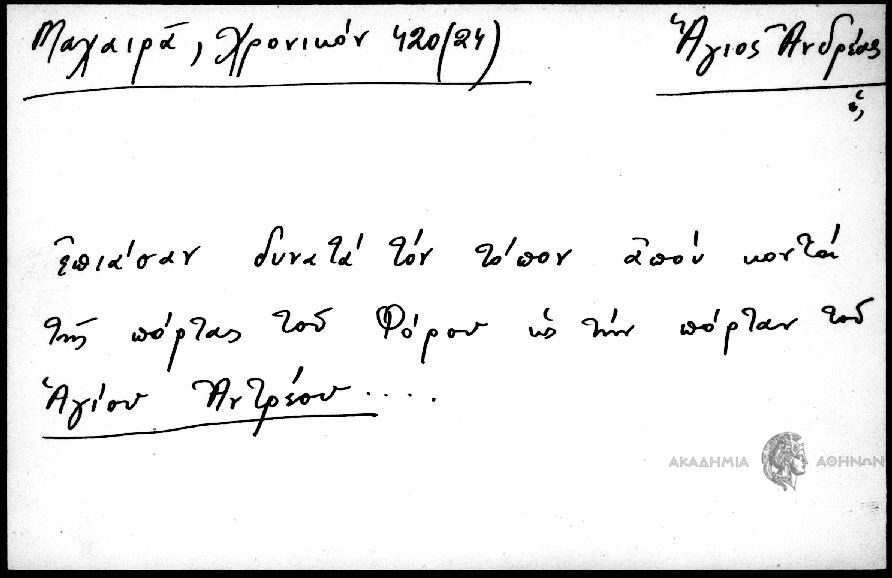 Μαχαιρᾶ, Χρονικόν 420(24)
Ἅγιος Ἀνδρέας
ὁ,
ἐπιάσαν δυνατά τόν τόπον ἀπού κοντά
τῆς πόρτας τοῦ Φόρου ὡς τήν πόρταν τοῦ
Ἁγίου Ἀντρέου ....
ΑΚΑΔΗΜΙΑ ΑΘΗΝΩΝ